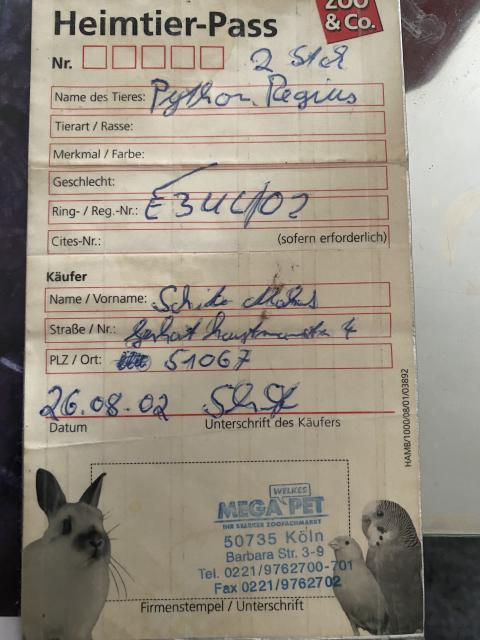 ZOO
& Co.
Heimtier-Pass
Nr. 2 Stck
Name des Tieres: Python Regius
Tierart / Rasse:
Merkmal / Farbe:
Geschlecht:
Ring- / Reg.-Nr.:
Cites-Nr.: (sofern erforderlich)
Käufer
Name / Vorname:
Straße / Nr.: 4
PLZ / Ort: 51067
26.08.02
Datum Unterschrift des Käufers
HAMB/1000/08/01/03892
WELKES
MEGA PET
IHR STARKER ZOOFACHMARKT
50735 Köln
Barbara Str. 3-9
Tel. 0221/9762700-701
Fax 0221/9762702
Firmenstempel / Unterschrift